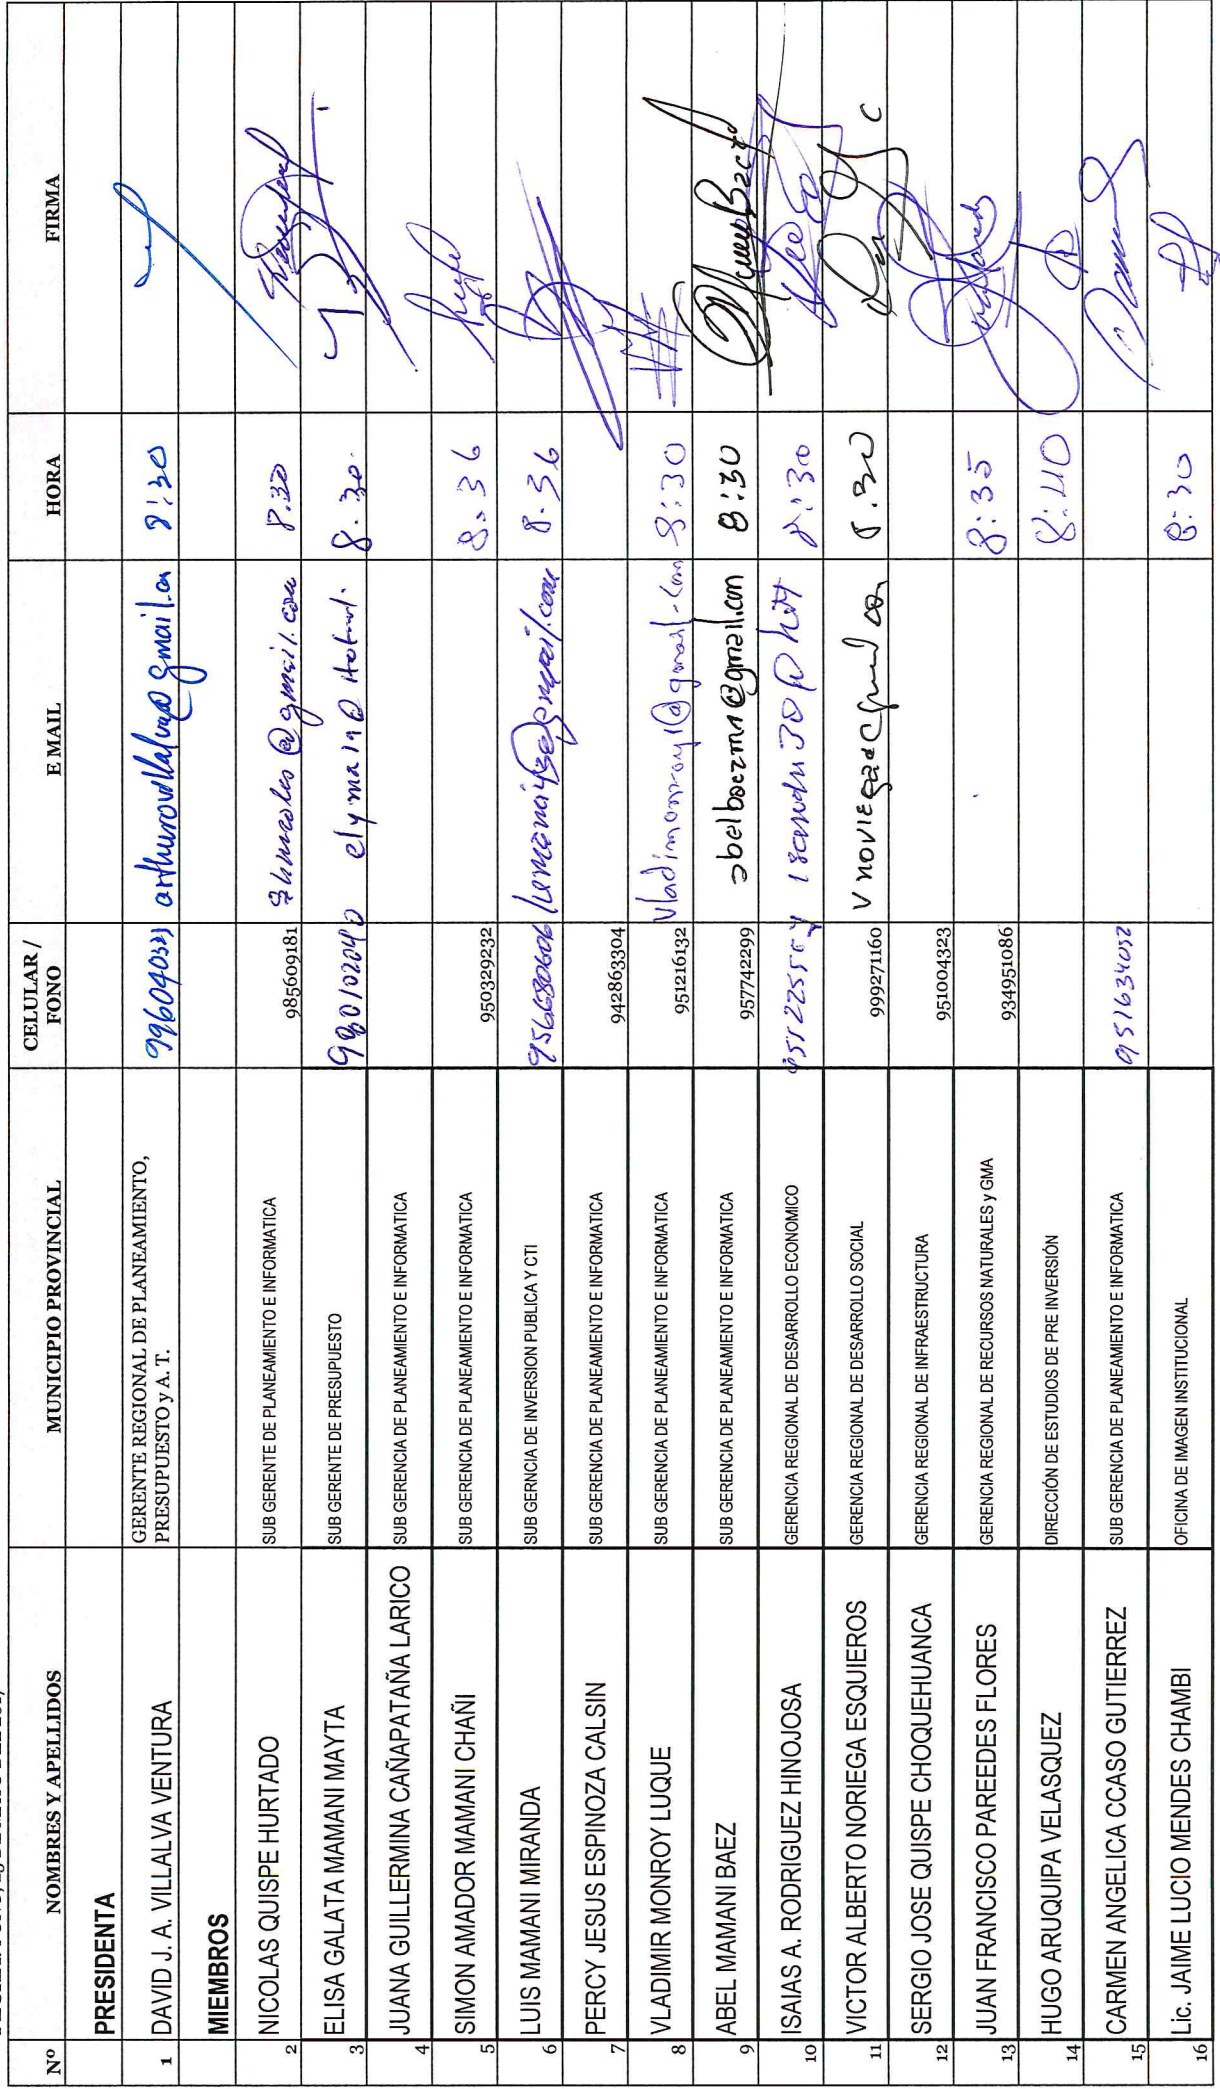 Nº NOMBRES Y APELLIDOS MUNICIPIO PROVINCIAL CELULAR / FONO E MAIL HORA FIRMA
PRESIDENTA
1 DAVID J. A. VILLALVA VENTURA GERENTE REGIONAL DE PLANEAMIENTO, PRESUPUESTO y A. T.
MIEMBROS
2 NICOLAS QUISPE HURTADO SUB GERENTE DE PLANEAMIENTO E INFORMATICA 985609181 8.30
3 ELISA GALATA MAMANI MAYTA SUB GERENTE DE PRESUPUESTO 8.30.
4 JUANA GUILLERMINA CAÑAPATAÑA LARICO SUB GERENCIA DE PLANEAMIENTO E INFORMATICA
5 SIMON AMADOR MAMANI CHAÑI SUB GERENCIA DE PLANEAMIENTO E INFORMATICA 950329232 8.36
6 LUIS MAMANI MIRANDA SUB GERNCIA DE INVERSION PUBLICA Y CTI 956680606 8.36
7 PERCY JESUS ESPINOZA CALSIN SUB GERENCIA DE PLANEAMIENTO E INFORMATICA 942863304
8 VLADIMIR MONROY LUQUE SUB GERENCIA DE PLANEAMIENTO E INFORMATICA 951216132 8:30
9 ABEL MAMANI BAEZ SUB GERENCIA DE PLANEAMIENTO E INFORMATICA 957742299 abelbaezmn@gmail.com 8:30
10 ISAIAS A. RODRIGUEZ HINOJOSA GERENCIA REGIONAL DE DESARROLLO ECONOMICO 8:30
11 VICTOR ALBERTO NORIEGA ESQUIEROS GERENCIA REGIONAL DE DESARROLLO SOCIAL 999271160 8.30
12 SERGIO JOSE QUISPE CHOQUEHUANCA GERENCIA REGIONAL DE INFRAESTRUCTURA 951004323
13 JUAN FRANCISCO PAREEDES FLORES GERENCIA REGIONAL DE RECURSOS NATURALES y GMA 934951086 8:35
14 HUGO ARUQUIPA VELASQUEZ DIRECCIÓN DE ESTUDIOS DE PRE INVERSIÓN 8:40
15 CARMEN ANGELICA CCASO GUTIERREZ SUB GERENCIA DE PLANEAMIENTO E INFORMATICA 951634052
16 Lic. JAIME LUCIO MENDES CHAMBI OFICINA DE IMAGEN INSTITUCIONAL 8:30